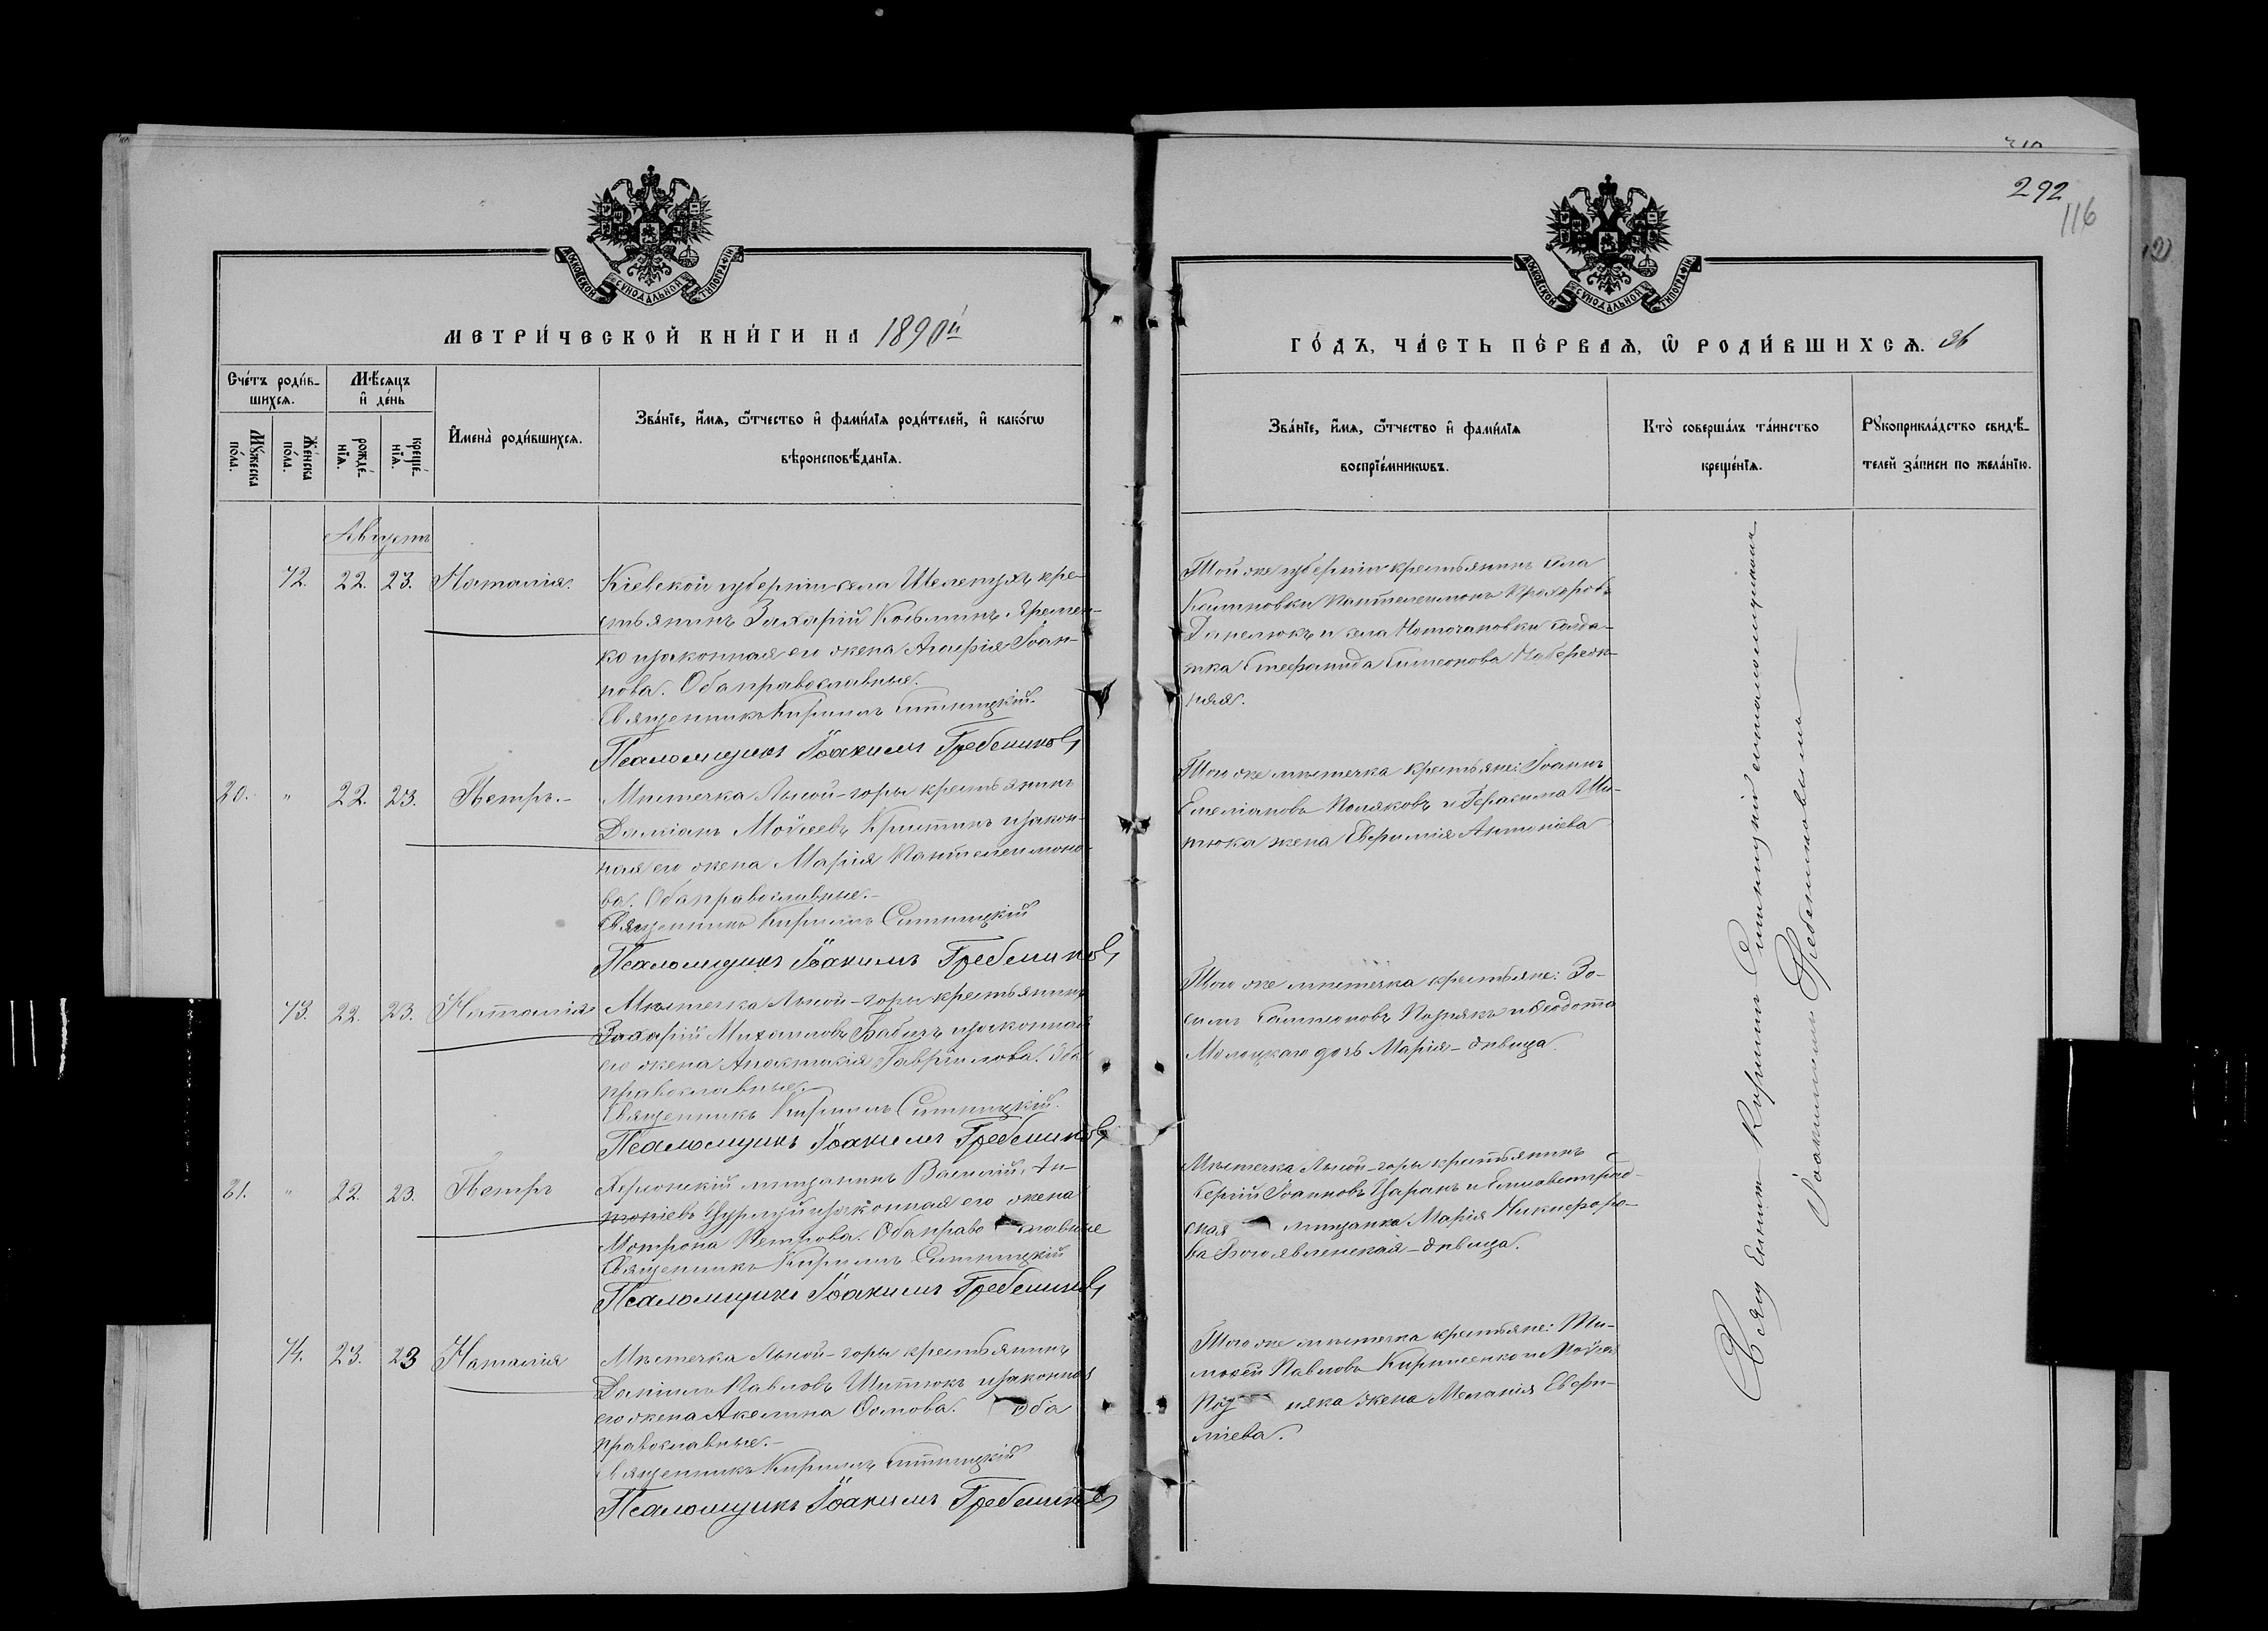 310
292
116
МОСКОВСКОЙ СУНОДАЛЬНОЙ ТИПОГРАФІИ
МЕТРИ́ЧЕСКОЙ КНИ́ГИ НА 1890й
Сче́тъ роди́в-
шихсѧ.
Мѣ́сѧцъ
и҆ де́нь
Мꙋ́жеска
по́ла.
Же́нска
по́ла.
рожде́-
нїѧ.
креще́-
нїѧ.
И҆мена̀ роди́вшихсѧ.
Зва́нїе, и҆́мѧ, ѿтчество и҆ фами́лїѧ роди́телей, и҆ како́гѡ
вѣроисповѣ́данїѧ.
Августъ
72. 22. 23. Наталія.
Кіевской губерніи села Шелепухъ кре-
стьянинъ Захарій Козьминъ Яремен-
ко изаконная его жена Агафія Іоан-
нова. Оба православные.
Священникъ Кириллъ Ситницкій.
Псаломщикъ Іоакимъ Гребенников,
20. " 22. 23. Петръ.-
Мѣстечка Лысой-горы крестьянинъ
Даміанъ Мойсеевъ изакон-
ная его жена Марія Пантелеимоно-
ва. Оба православные.-
Священникъ Кириллъ Ситницкій
Псаломщикъ Іоакимъ Гребенников,
73. 22. 23. Наталія
Мѣстечка Лысой-горы крестьянинъ
Захарій Михайловъ Бабичъ изаконная
его жена Анастасія Гавріилова. Оба
православные.-
Священникъ Кириллъ Ситницкій.
Псаломщикъ Іоакимъ Гребенников,
21. " 22. 23. Петръ
Херсонскій мѣщанинъ Василій Ан-
тоніевъ изаконная его жена
Мотрона Петрова. Оба право славные
Священникъ Кириллъ Ситницкій
Псаломщикъ Іоакимъ Гребенников,
74. 23. 23 Наталія
Мѣстечка Лысой-горы крестьянинъ
Даніилъ Павловъ Шитюкъ изаконная
его жена Акелина Ѳомова. Оба
православные.-
Священникъ Кириллъ Ситницкій
Псаломщикъ Іоакимъ Гребенников,
МОСКОВСКОЙ СУНОДАЛЬНОЙ ТИПОГРАФІИ
ГО́ДЪ, ЧА́СТЬ ПЕ́РВАѦ, Ѽ РОДИ́ВШИХСѦ.
Зва́нїе, и҆́мѧ, ѿтчество и҆ фами́лїѧ
воспрїе́мникѡвъ.
Кто̀ соверша́лъ та́инство
креще́нїѧ.
Рꙋкоприкла́дство свидѣ́-
телей за́писи по жела́нїю.
Той же губерніи крестьянинъ села
Калиновки Пантелеимонъ Прохоровъ
Данелюкъ и села солда-
тка Стефанида Симеонова Побереж-
няя.
Того же мѣстечка крестьяне: Іоаннъ
Емеліановъ Поляковъ и Герасима Ши-
тюка жена Евфимія Антоніева
Того же мѣстечка крестьяне: Зо-
симъ Симеоновъ Познякъ и Ѳеодота
дочь Марія-дѣвица.
Мѣстечка Лысой-горы крестьянинъ
Сергій Іоанновъ Царанъ и Елисаветград-
ская мѣщанка Марія Никифоро-
ва Богоявленская-дѣвица.
Того же мѣстечка крестьяне: Ти-
мофей Павловъ Кириченко и
Поз няка жена Меланія Евфи-
міева.
Кириллъ Ситницкій
Іоакимомъ Гребенниковымъ